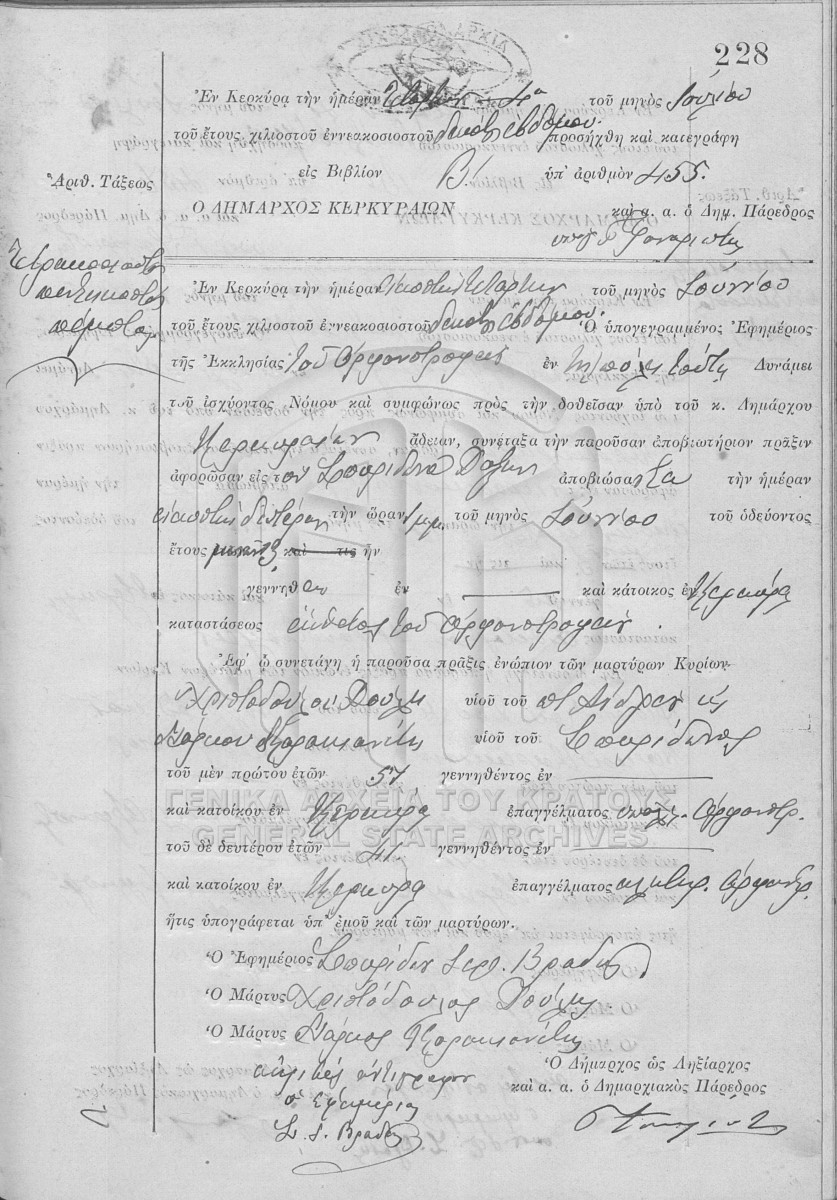 228
Ἐν Κερκύρᾳ τὴν ἡμέραν τοῦ μηνὸς Ἰουλίου
τοῦ ἔτους χιλιοστοῦ ἐννεακοσιοστοῦ δεκάτου ἑβδόμου προσήχθη καὶ κατεγράφη
εἰς Βιβλίον Β. ὑπ' ἀριθμὸν 455.
Ἀριθ. Τάξεως
Ο ΔΗΜΑΡΧΟΣ ΚΕΡΚΥΡΑΙΩΝ καὶ α. α. ὁ Δημ. Πάρεδρος
Τετρακοσιοστὸς
πεντηκοστὸς
πέμπτος
Ἐν Κερκύρᾳ τὴν ἡμέραν εἰκοστὴν τετάρτην τοῦ μηνὸς Ἰουνίου
τοῦ ἔτους χιλιοστοῦ ἐννεακοσιοστοῦ δεκάτου ἑβδόμου. Ὁ ὑπογεγραμμένος Ἐφημέριος
τῆς Ἐκκλησίας τοῦ Ὀρφανοτροφείου ἐν τῇ πόλει ταύτῃ Δυνάμει
τοῦ ἰσχύοντος Νόμου καὶ συμφώνως πρὸς τὴν δοθεῖσαν ὑπὸ τοῦ κ. Δημάρχου
Κερκυραίων ἄδειαν, συνέταξα τὴν παροῦσαν ἀποβιωτήριον πρᾶξιν
ἀφορῶσαν εἰς τὸν Σπυρίδωνα ἀποβιώσαντα τὴν ἡμέραν
εἰκοστὴν δευτέραν τὴν ὥραν 1 μ.μ. τοῦ μηνὸς Ἰουνίου τοῦ ὁδεύοντος
ἔτους καὶ τις ἦν
γεννηθεὶς ἐν καὶ κάτοικος ἐν Κερκύρᾳ
καταστάσεως ἔκθετος τοῦ Ὀρφανοτροφείου.
Ἐφ' ᾧ συνετάγη ἡ παροῦσα πρᾶξις ἐνώπιον τῶν μαρτύρων Κυρίων
Χριστοδούλου Δούλη υἱοῦ τοῦ ποτὲ Ἀνδρέου κ
υἱοῦ τοῦ Σπυρίδωνος
τοῦ μὲν πρώτου ἐτῶν 57 γεννηθέντος ἐν
καὶ κατοίκου ἐν Κερκύρᾳ ἐπαγγέλματος Ὀρφανοτρ.
τοῦ δὲ δευτέρου ἐτῶν 41. γεννηθέντος ἐν
καὶ κατοίκου ἐν Κερκύρᾳ ἐπαγγέλματος Ὀρφανοτρ.
ἥτις ὑπογράφεται ὑπ' ἐμοῦ καὶ τῶν μαρτύρων.
Ὁ Ἐφημέριος Σπυρίδων Βραδῆς
Ὁ Μάρτυς Χριστόδουλος Δούλης
Ὁ Μάρτυς
ἀκριβὲς ἀντίγραφον
ὁ Ἐφημέριος
Σ. Βραδῆς
Ὁ Δήμαρχος ὡς Ληξίαρχος
καὶ α. α. ὁ Δημαρχιακὸς Πάρεδρος
ΓΕΝΙΚΑ ΑΡΧΕΙΑ ΤΟΥ ΚΡΑΤΟΥΣ
GENERAL STATE ARCHIVES